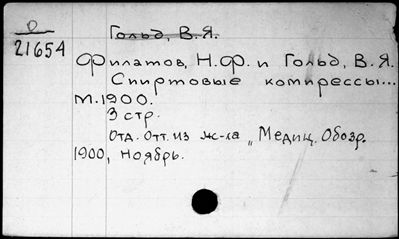 0
21654
Гольд, В.Я.
Филатов, Н.Ф. и Гольд, В.Я.
Спиртовые компрессы...
М.1900.
3 стр.
Отд. Отт. из ж-ла „Медиц. Обозр.
1900, Ноябрь.